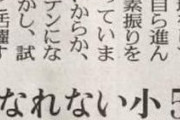 自ら進ん
素振りを
っていま
からか、
テンにな
かし、試
なれない小5